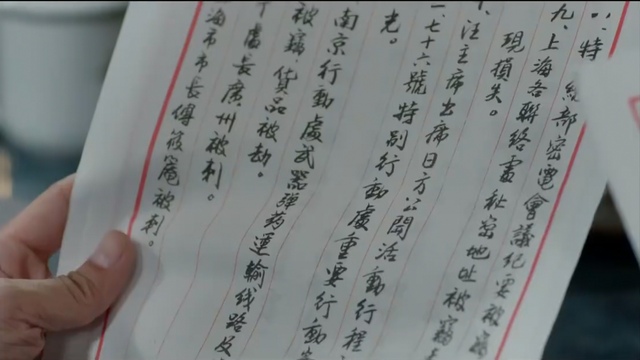 八、特
部密電會議紀要被竊
九、上海各聯絡處秘密地址被竊
現損失。
、汪主席出席日方公開活動行程
光。
、七十六號特别行動處重要行動
南京行動處武器彈药運輸线路及
被竊，货品被劫。
處長廣州被刺。
海市市長傅筱庵被刺。